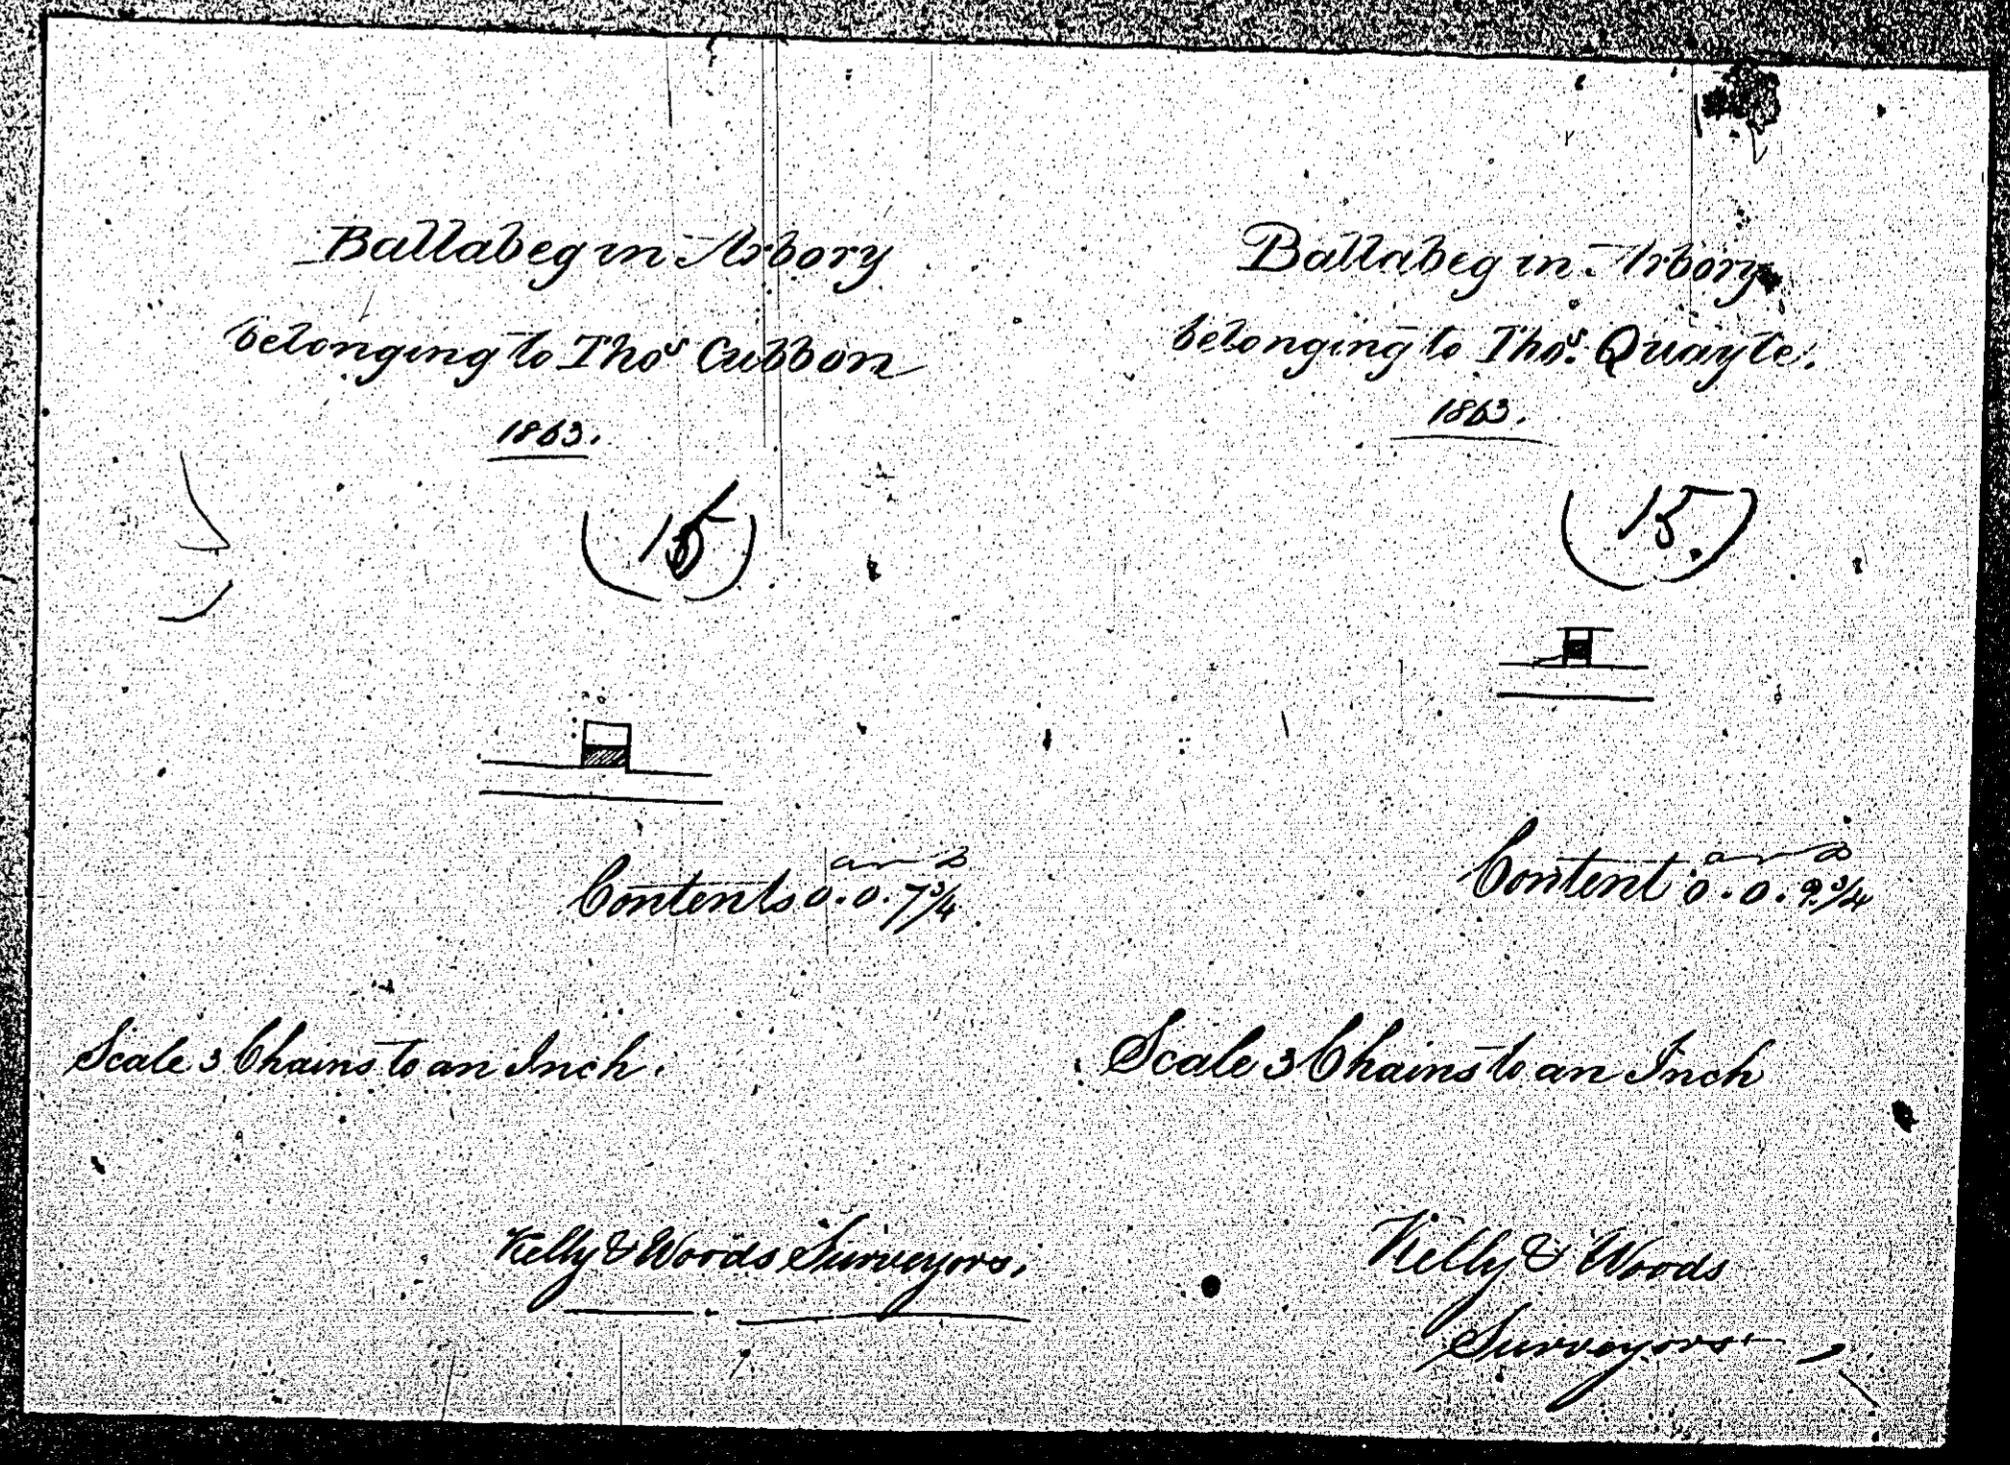 Ballabeg in Arbory
belonging to Thos Cubbon
1863.
15
a r p
Contents 0.0.7¾
Scale 3 Chains to an Inch.
Kelly & Woods Surveyors,
Ballabeg in Arbory
belonging to Thos. Quayle.
1863.
15.
a r p
Content 0.0.2¾
Scale 3 Chains to an Inch
Kelly & Woods
Surveyors